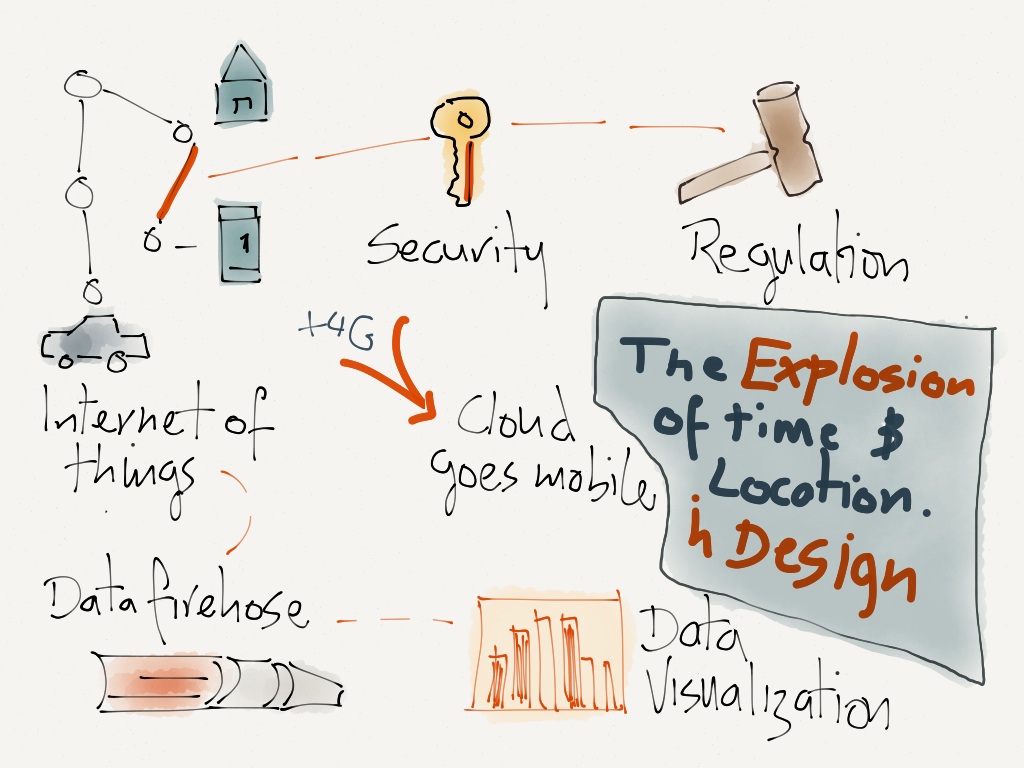 1
Security
Regulation
+4G
Internet of
things
Cloud
goes mobile
The Explosion
of time &
Location.
in Design
Data firehose
Data
Visualization